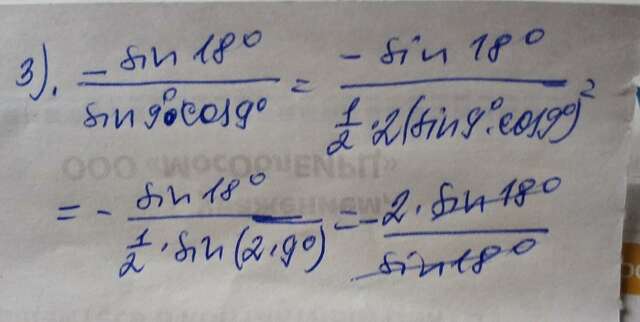 3). -sin 18° / sin 9° · cos 9° = -sin 18° / ½ · 2(sin 9° · cos 9°) =
= - sin 18° / ½ · sin(2 · 9°) = - 2 · sin 18° / sin 18°
ООО «МОСОБЛЕИРЦ»